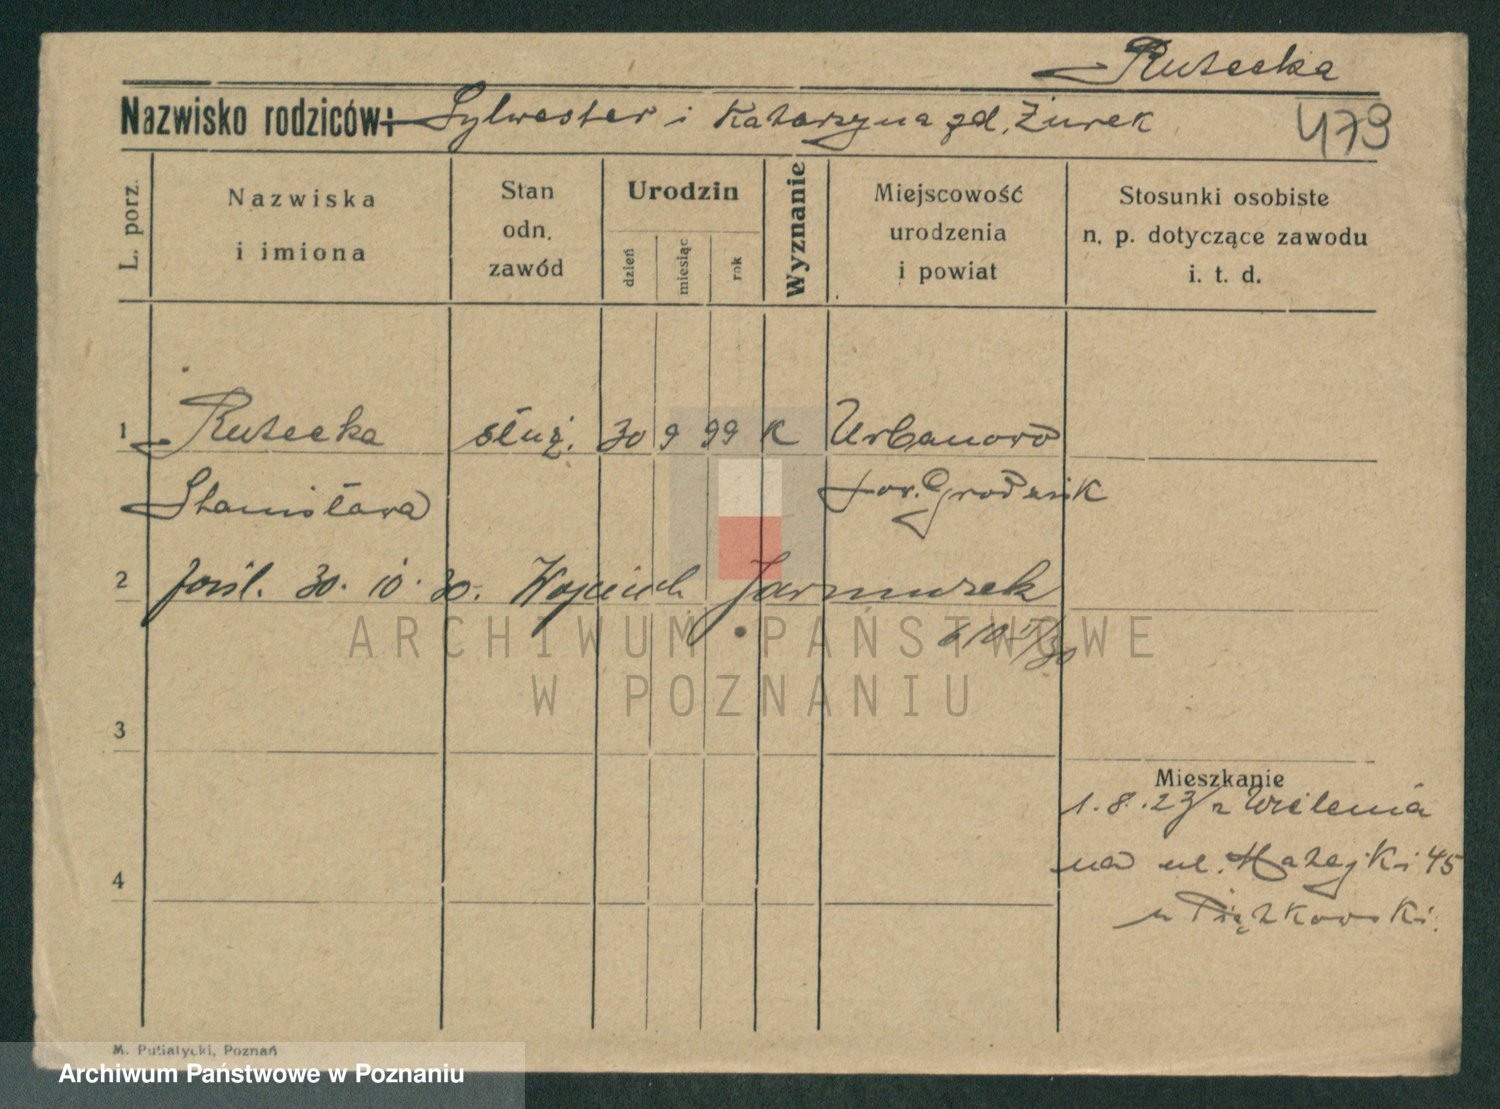 Rutecka
Nazwisko rodziców: Sylwester i Katarzyna zd. Żurek
479
L. porz.
Nazwiska
i imiona
Stan
odn.
zawód
Urodzin
dzień
miesiąc
rok
Wyznanie
Miejscowość
urodzenia
i powiat
Stosunki osobiste
n. p. dotyczące zawodu
i. t. d.
1 Rutecka służ. 30 9 99 K Urbanowo
Stanisława pow. Grodzisk
2 pośl. 30. 10. 30. Wojciech Jarmuszek
3
Mieszkanie
1. 8. 23 z Wielenia
na ul. Matejki 45
4
ARCHIWUM PAŃSTWOWE
W POZNANIU
M. Putiatycki, Poznań
Archiwum Państwowe w Poznaniu